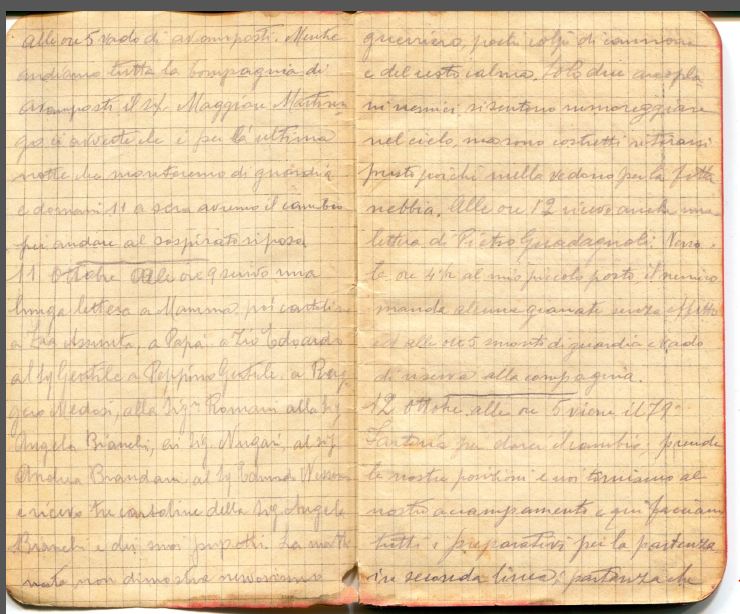 alle ore 5 vado di avamposti. Mentre
andiamo tutta la Compagnia di
avamposti il Sig. Maggiore
ci avverte che è per la ultima
notte che monteremo di guardia
e domani 11 a sera avremo il cambio
per andare al sospirato riposo.
11 Ottobre Alle ore 9 scrivo una
lunga lettera a Mamma, poi cartoline
a Zia Assunta, a Papà, a Zio Edoardo
al Sg Gentile a Peppino Gentile, a
Medosi, alla Sigra Romani alla Sig
Angela Bianchi, ai Sig. Nugari, al Sig.
Andrea Brandani, al Sg
e ricevo tre cartoline della Sig Angela
Bianchi e dei suoi pupetti. La matti
nata, non dimostra nervosismo
guerriero, pochi colpi di cannone
e del resto calma. Solo due aeropla
ni nemici, si sentono rumoreggiare
nel cielo, ma sono costretti ritirarsi
presto poiché nulla vedono per la fitta
nebbia. Alle ore 12 ricevo anche una
lettera di Pietro Guadagnoli. Verso
le ore 4½ al mio piccolo posto il nemico
manda alcune granate senza effetto
ed alle ore 5 smonto di guardia e vado
di riserva alla compagnia.
12 Ottobre, alle ore 5 viene il 79º
per darci il cambio; prende
le nostre posizioni e noi torniamo al
nostro accampamento e qui facciam
tutti i preparativi per la partenza
in seconda linea; partenza che